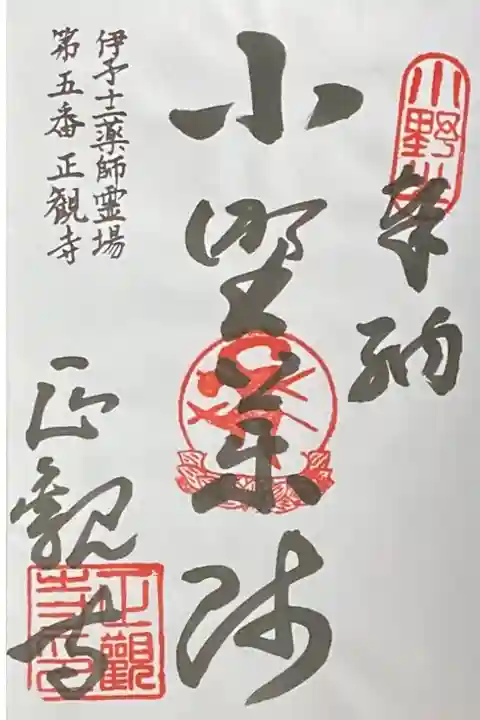 小野山
奉納
小野薬師
伊予十二薬師霊場
第五番正観寺
正観寺
正觀寺印